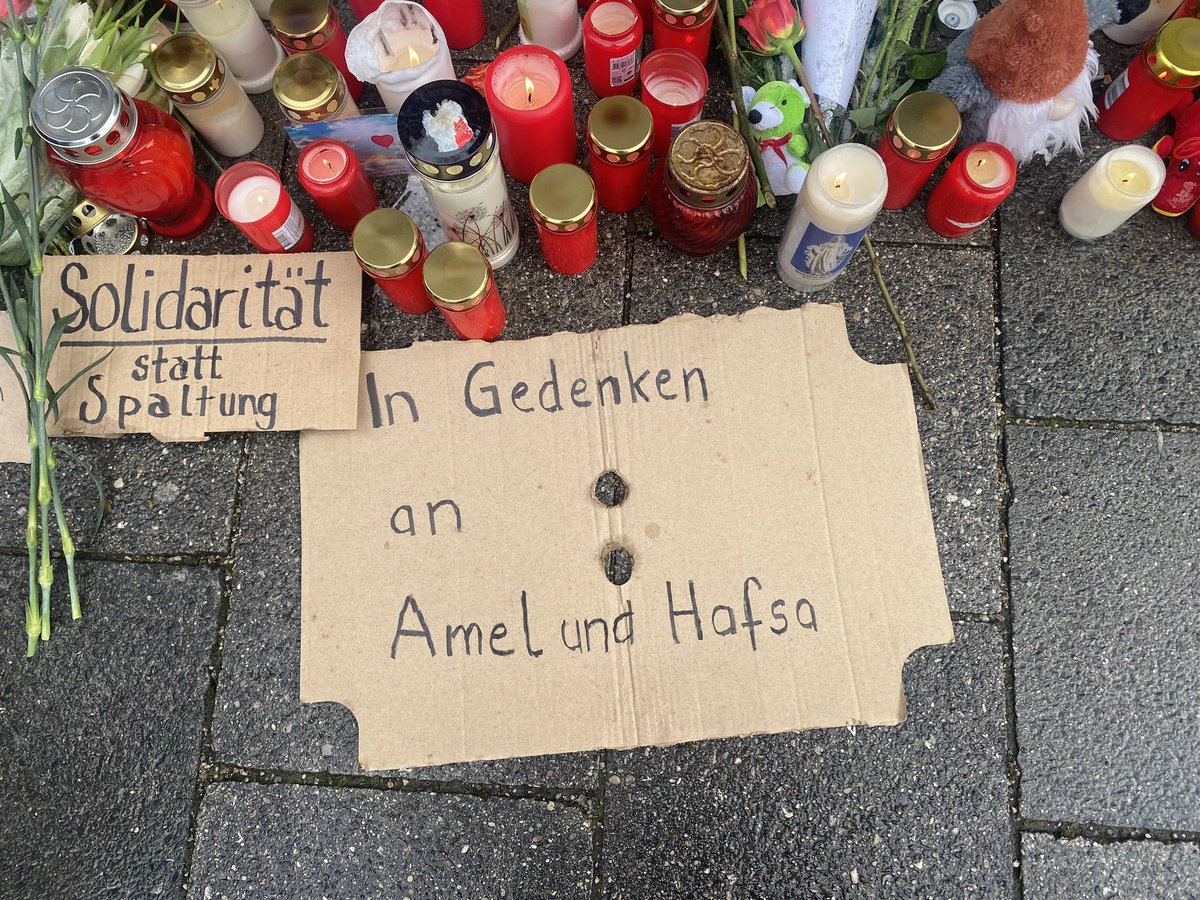 Solidarität
statt
Spaltung
In Gedenken
an
Amel und Hafsa